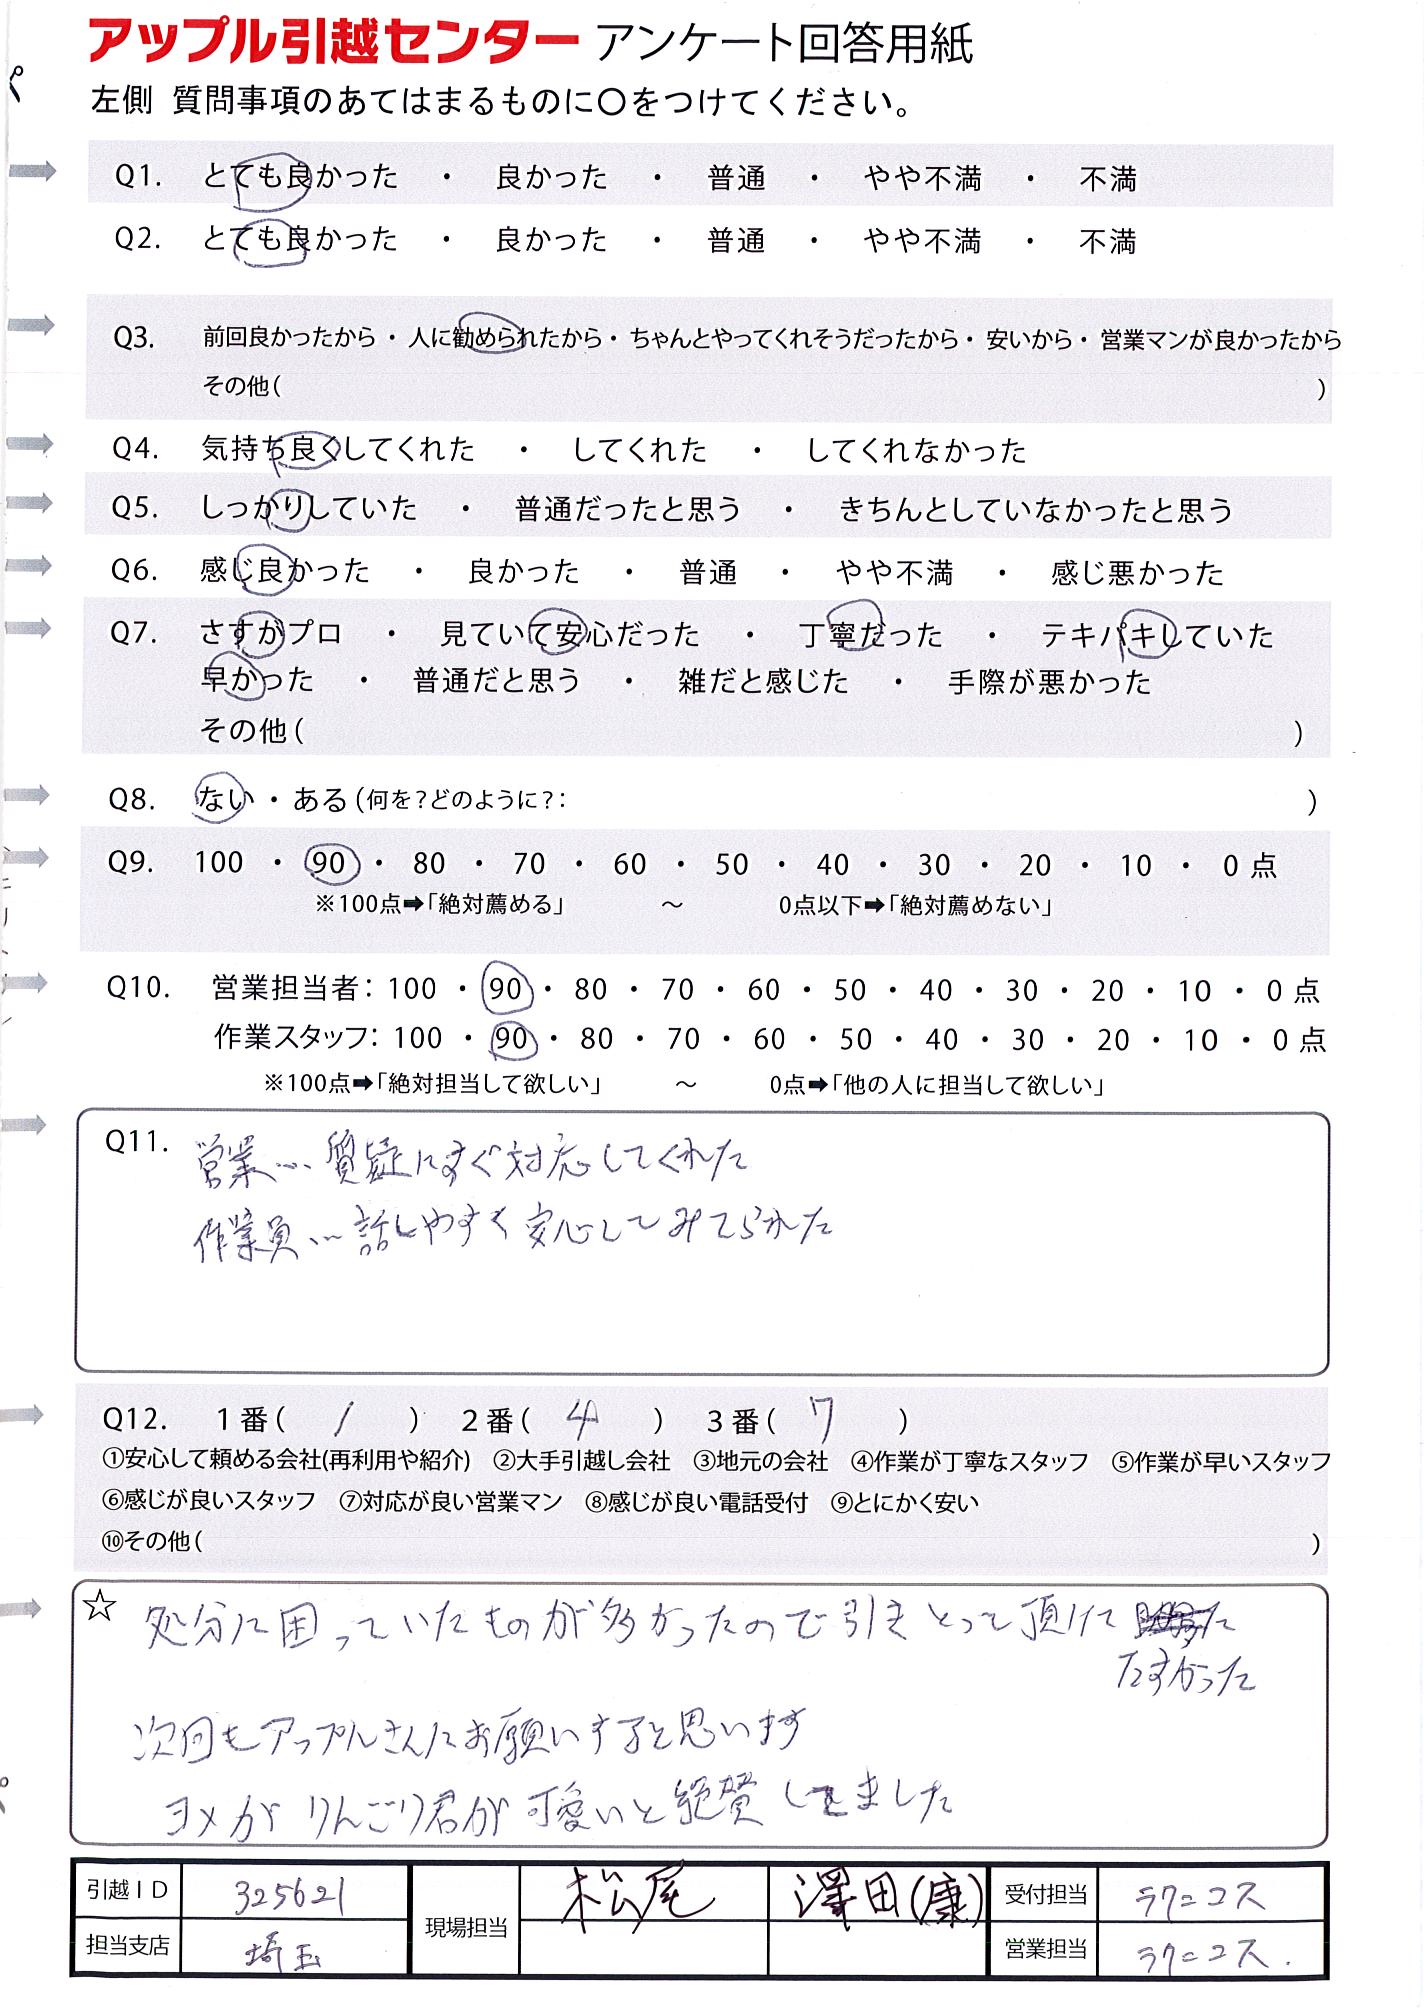 アップル引越センター アンケート回答用紙
左側 質問事項のあてはまるものに〇をつけてください。
Q1. とても良かった ・ 良かった ・ 普通 ・ やや不満 ・ 不満
Q2. とても良かった ・ 良かった ・ 普通 ・ やや不満 ・ 不満
Q3. 前回良かったから・ 人に勧められたから・ ちゃんとやってくれそうだったから・ 安いから・ 営業マンが良かったから
その他( )
Q4. 気持ち良くしてくれた ・ してくれた ・ してくれなかった
Q5. しっかりしていた ・ 普通だったと思う ・ きちんとしていなかったと思う
Q6. 感じ良かった ・ 良かった ・ 普通 ・ やや不満 ・ 感じ悪かった
Q7. さすがプロ ・ 見ていて安心だった ・ 丁寧だった ・ テキパキしていた
早かった ・ 普通だと思う ・ 雑だと感じた ・ 手際が悪かった
その他( )
Q8. ない・ある(何を?どのように?: )
Q9. 100 ・ 90 ・ 80 ・ 70 ・ 60 ・ 50 ・ 40 ・ 30 ・ 20 ・ 10 ・ 0 点
※100点➡「絶対薦める」 〜 0点以下➡「絶対薦めない」
Q10. 営業担当者: 100 ・ 90 ・ 80 ・ 70 ・ 60 ・ 50 ・ 40 ・ 30 ・ 20 ・ 10 ・ 0 点
作業スタッフ: 100 ・ 90 ・ 80 ・ 70 ・ 60 ・ 50 ・ 40 ・ 30 ・ 20 ・ 10 ・ 0 点
※100点➡「絶対担当して欲しい」 〜 0点➡「他の人に担当して欲しい」
Q11. 営業… 質疑にすぐ対応してくれた
作業員… 話しやすく安心してみてられた
Q12. 1番( 1 ) 2番( 4 ) 3番( 7 )
①安心して頼める会社(再利用や紹介) ②大手引越し会社 ③地元の会社 ④作業が丁寧なスタッフ ⑤作業が早いスタッフ
⑥感じが良いスタッフ ⑦対応が良い営業マン ⑧感じが良い電話受付 ⑨とにかく安い
⑩その他( )
☆ 処分に困っていたものが多かったので引きとって頂けて
たすかった
次回もアップルさんにお願いすると思います
ヨメがりんごり君が可愛いと絶賛してました
引越ID 325621 現場担当 松尾 澤田(康) 受付担当 ラクニコス
担当支店 埼玉 営業担当 ラクニコス.